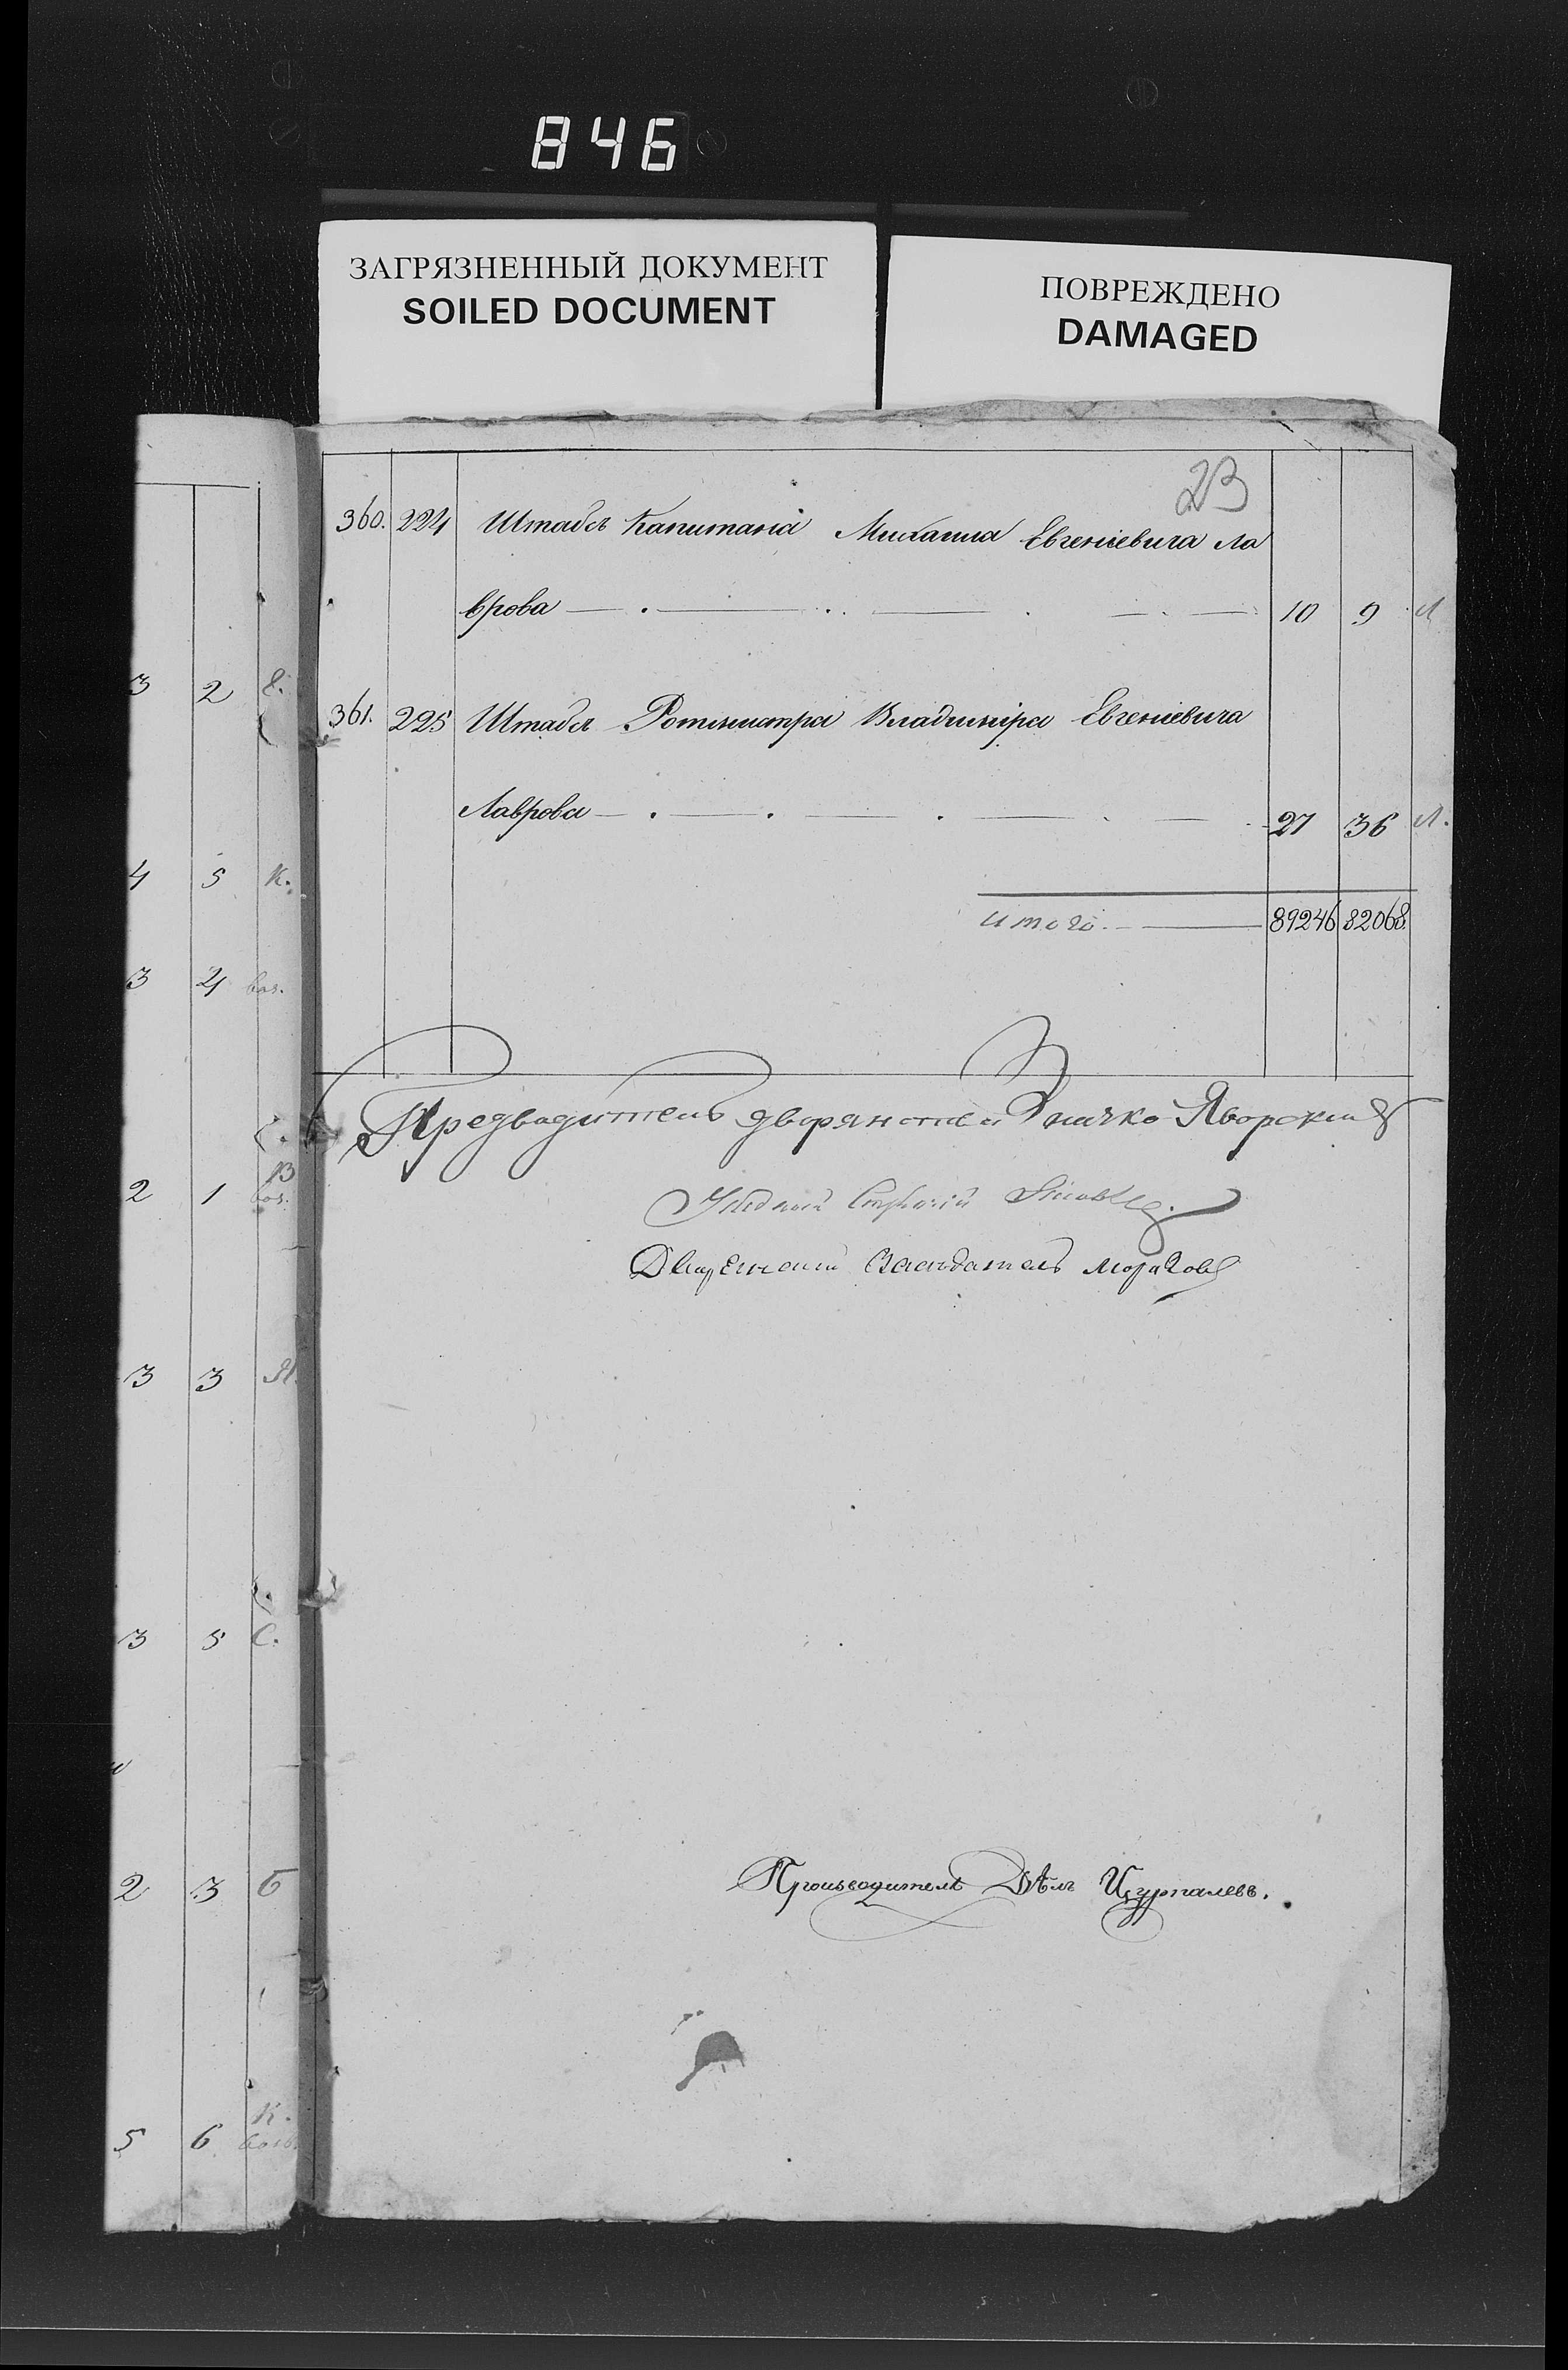 846
ЗАГРЯЗНЕННЫЙ ДОКУМЕНТ
SOILED DOCUMENT
ПОВРЕЖДЕНО
DAMAGED
23
360. 224 Штабсъ Капитана Михаила Евгеніевича Ла
врова 10 9 Л
361. 225 Штабсъ Ротмистра Владиміра Евгеніевича
Лаврова 27 36 Л.
Итого 89246 82068.
Предводитель дворянства Значко Яворскій
Уѣздный Стряпчій
Дворянскій Засѣдатель
Производитель Дѣлъ Цурпалевъ.
3 2
4 5 К.
3 4
2 1
3 3 Я.
3 5 С.
2 3 Б
5 6 К.